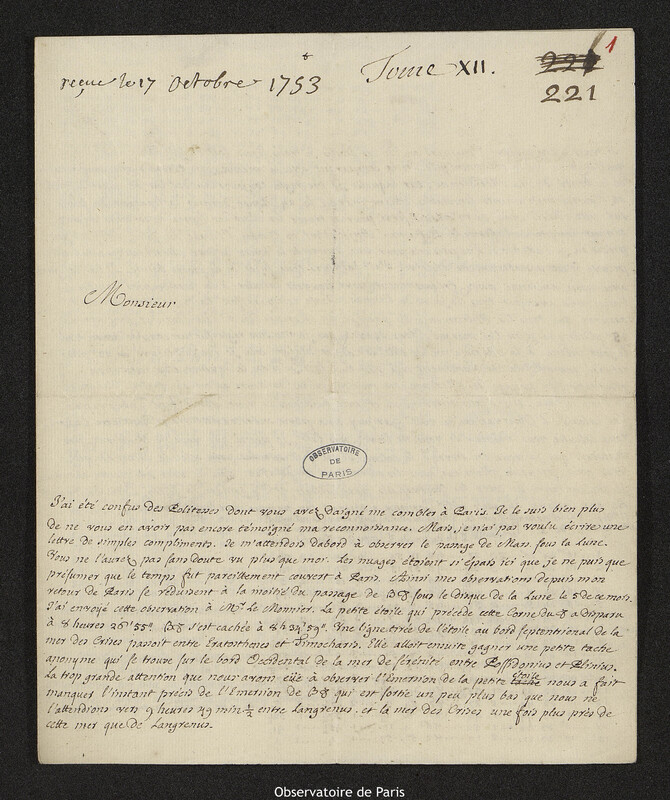 reçue le 17 Octobre 1753
Tome XII.
221
1
221
Monsieur
OBSERVATOIRE
DE
PARIS
J'ai été confus des Politesses dont vous avez daigné me combler à Paris. Je le suis bien plus
de ne vous en avoir pas encore témoigné ma reconnoissance. Mais, je n'ai pas voulu écrire une
lettre de simples compliments. Je m'attendois dabord à observer le passage de Mars sous la Lune.
Vous ne l'aurez pas sans doute vu plus que moi. Les nuages étoient si épais ici que je ne puis que
présumer que le temps fut pareillement couvert à Paris. Ainsi mes observations depuis mon
retour de Paris se réduisent à la moitié du passage de B♉ sous le disque de la Lune le 5 de ce mois.
J'ai envoyé cette observation à Mr. Le Monnier. La petite étoile qui précède cette Corne du ♉ a disparu
à 8 heures 26' 55". B♉ s'est cachée à 8h 34' 59". Une ligne tirée de l'étoile au bord septentrional de la
mer des Crises passoit entre Eratosthenes et Timocharis. Elle alloit ensuite gagner une petite tache
anonyme qui se trouve sur le bord Occidental de la mer de sérénité entre Possidonius et Plinius.
La trop grande attention que nous avons eüe à observer l'Emersion de la petite étoile nous a fait
manquer l'instant précis de l'Emersion de B♉ qui est sortie un peu plus bas que nous ne
l'attendions vers 9 heures 49 min ½ entre Langrenus et la mer des Crises une fois plus près de
cette mer que de Langrenus.
Observatoire de Paris